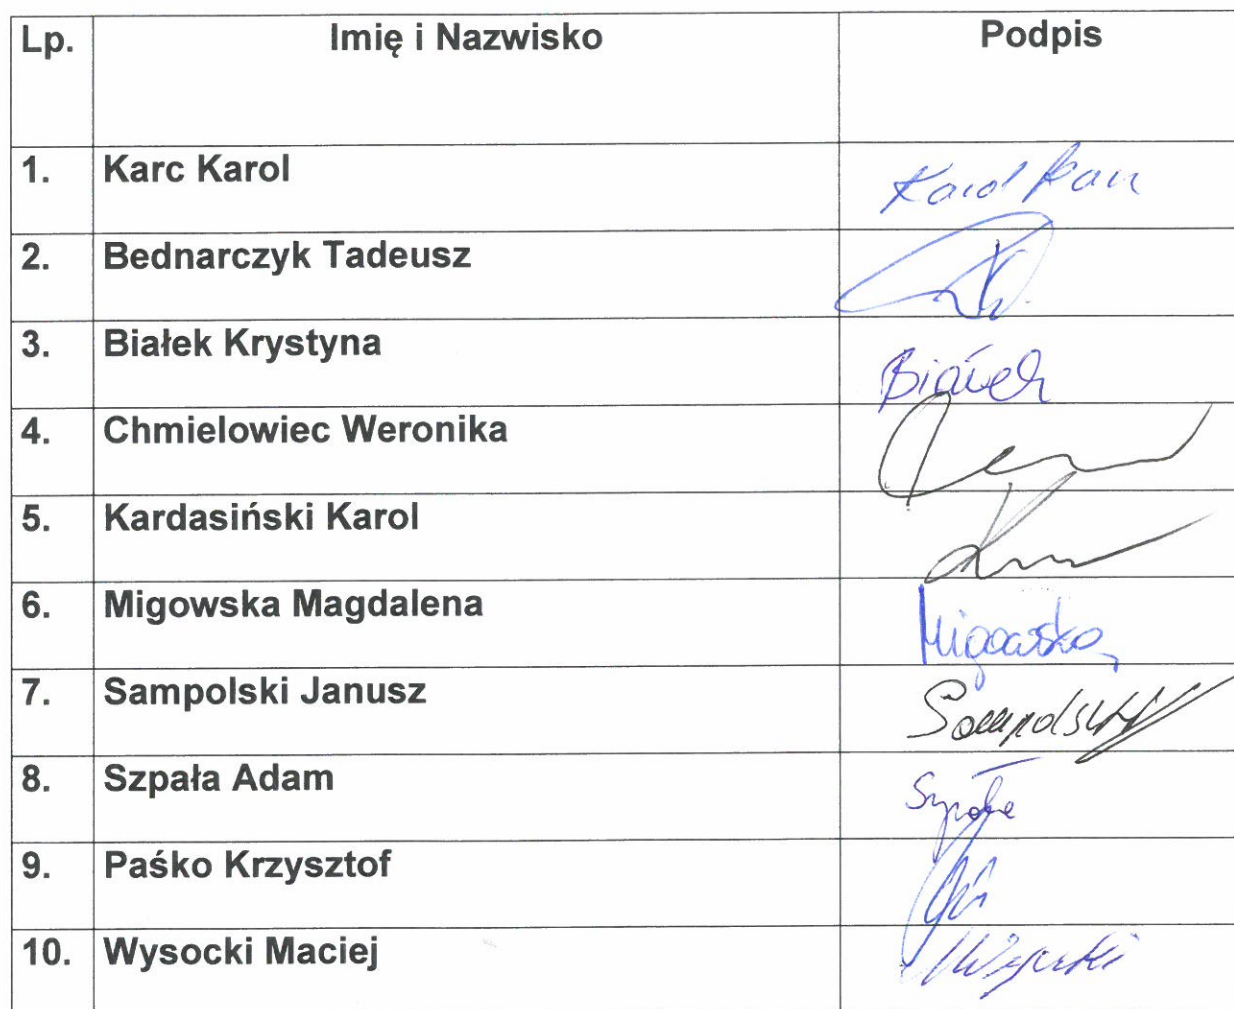 Lp. Imię i Nazwisko Podpis
1. Karc Karol Karol Karc
2. Bednarczyk Tadeusz
3. Białek Krystyna Białek
4. Chmielowiec Weronika
5. Kardasiński Karol
6. Migowska Magdalena Migowska
7. Sampolski Janusz Sampolski
8. Szpała Adam Szpała
9. Paśko Krzysztof
10. Wysocki Maciej Wysocki